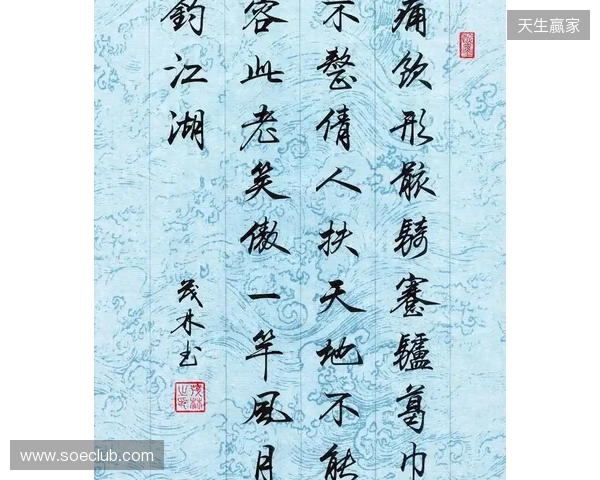 天生赢家
痛饮形骸騎蹇驢葛巾
不整倩人扶天地不能
容此老笑傲一竿風月
釣江湖
茂林书
www.soeclub.com